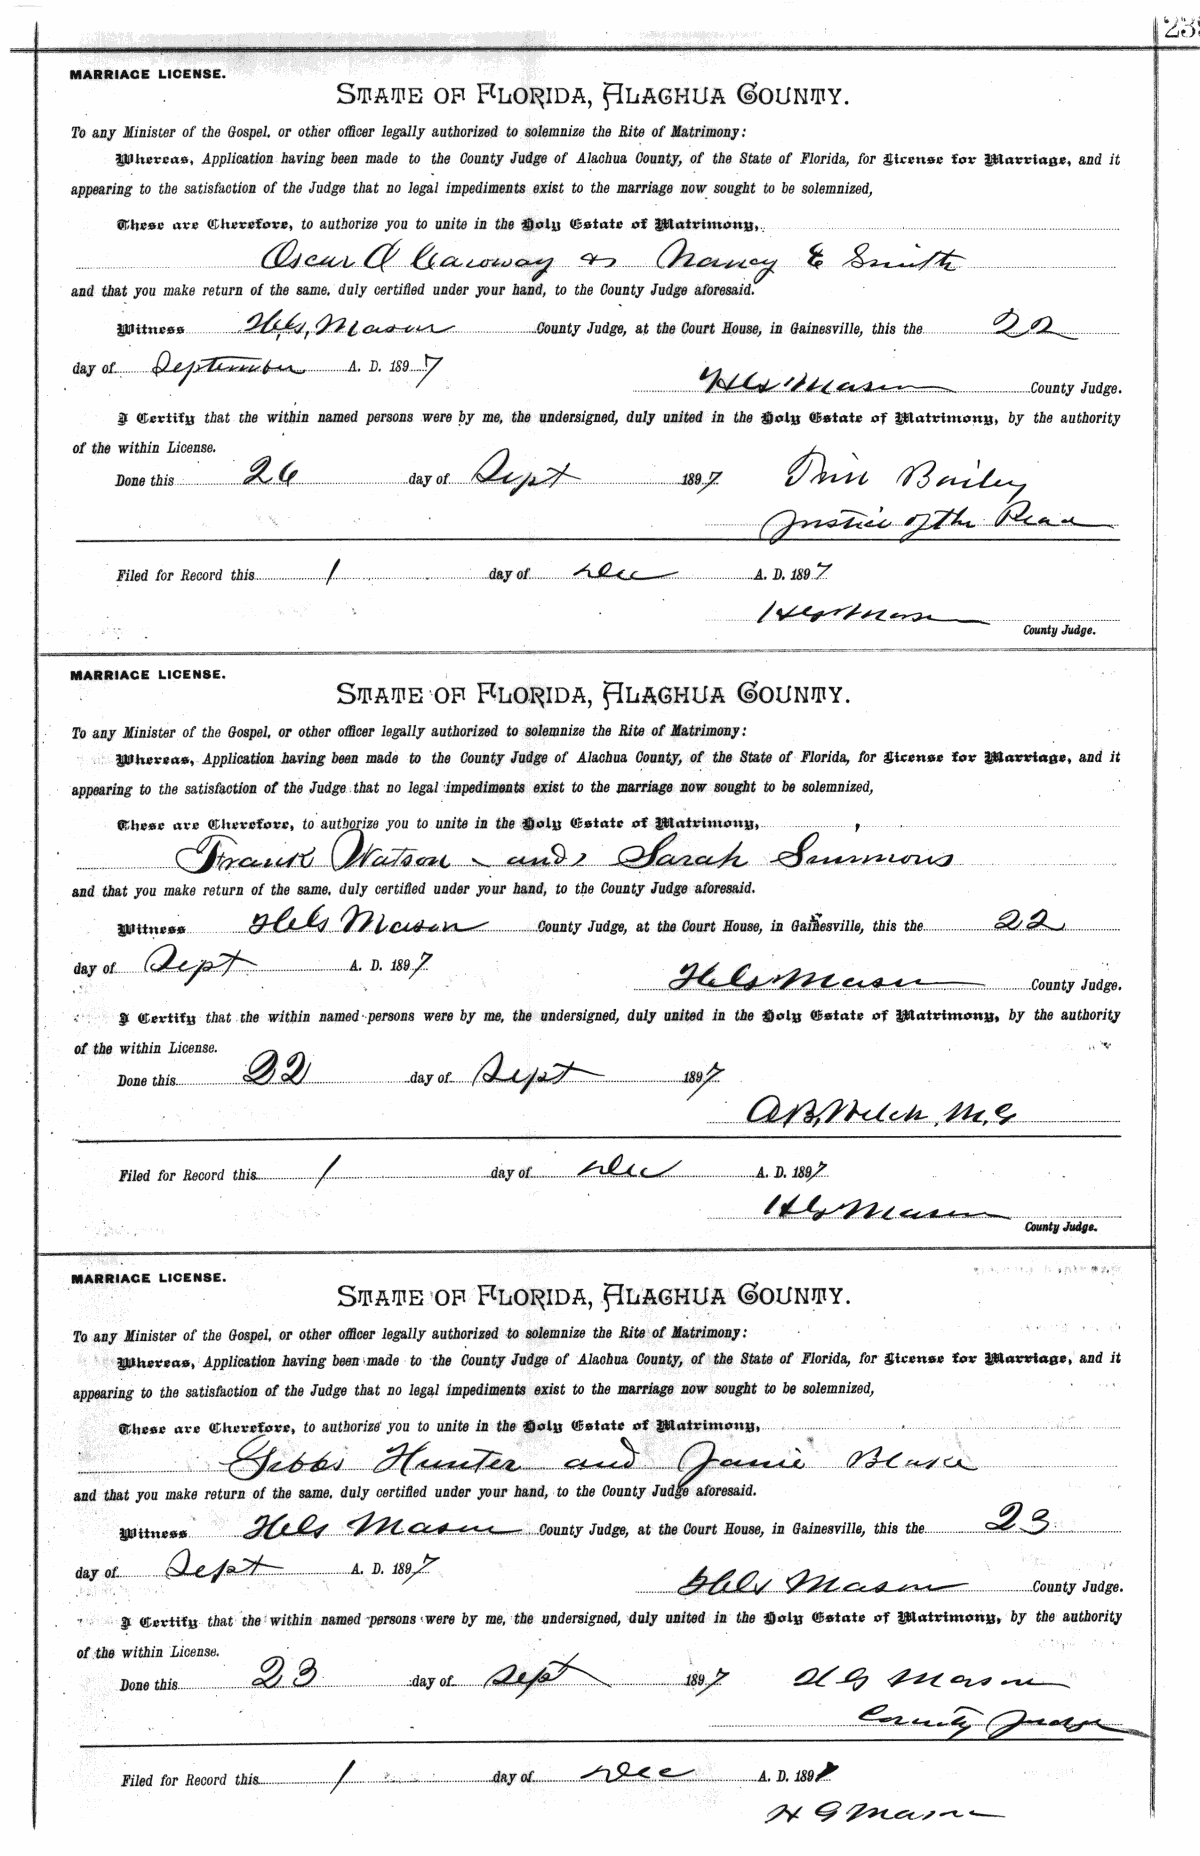 MARRIAGE LICENSE.
STATE OF FLORIDA, ALACHUA COUNTY.
To any Minister of the Gospel, or other officer legally authorized to solemnize the Rite of Matrimony:
Whereas, Application having been made to the County Judge of Alachua County, of the State of Florida, for License for Marriage, and it
appearing to the satisfaction of the Judge that no legal impediments exist to the marriage now sought to be solemnized,
These are Therefore, to authorize you to unite in the Holy Estate of Matrimony,
Oscar A Caroway & Nancy E Smith
and that you make return of the same, duly certified under your hand, to the County Judge aforesaid.
Witness H.G. Mason County Judge, at the Court House, in Gainesville, this the 22
day of September A. D. 1897
H G Mason County Judge.
I Certify that the within named persons were by me, the undersigned, duly united in the Holy Estate of Matrimony, by the authority
of the within License.
Done this 26 day of Sept 1897 Bailey
Justice of the Peace
Filed for Record this 1 day of Dec A. D. 1897
H G Mason
County Judge.
MARRIAGE LICENSE.
STATE OF FLORIDA, ALACHUA COUNTY.
To any Minister of the Gospel, or other officer legally authorized to solemnize the Rite of Matrimony:
Whereas, Application having been made to the County Judge of Alachua County, of the State of Florida, for License for Marriage, and it
appearing to the satisfaction of the Judge that no legal impediments exist to the marriage now sought to be solemnized,
These are Therefore, to authorize you to unite in the Holy Estate of Matrimony,
Frank Watson and Sarah Simmons
and that you make return of the same, duly certified under your hand, to the County Judge aforesaid.
Witness H G Mason County Judge, at the Court House, in Gainesville, this the 22
day of Sept A. D. 1897
H G Mason County Judge.
I Certify that the within named persons were by me, the undersigned, duly united in the Holy Estate of Matrimony, by the authority
of the within License.
Done this 22 day of Sept 1897
A.B. Welch, M.G
Filed for Record this 1 day of Dec A. D. 1897
H G Mason
County Judge.
MARRIAGE LICENSE.
STATE OF FLORIDA, ALACHUA COUNTY.
To any Minister of the Gospel, or other officer legally authorized to solemnize the Rite of Matrimony:
Whereas, Application having been made to the County Judge of Alachua County, of the State of Florida, for License for Marriage, and it
appearing to the satisfaction of the Judge that no legal impediments exist to the marriage now sought to be solemnized,
These are Therefore, to authorize you to unite in the Holy Estate of Matrimony,
Gibbs Hunter and Janie Blake
and that you make return of the same, duly certified under your hand, to the County Judge aforesaid.
Witness H G Mason County Judge, at the Court House, in Gainesville, this the 23
day of Sept A. D. 1897
H G Mason County Judge.
I Certify that the within named persons were by me, the undersigned, duly united in the Holy Estate of Matrimony, by the authority
of the within License.
Done this 23 day of Sept 1897 H G Mason
County Judge
Filed for Record this 1 day of Dec A. D. 1897
H G Mason